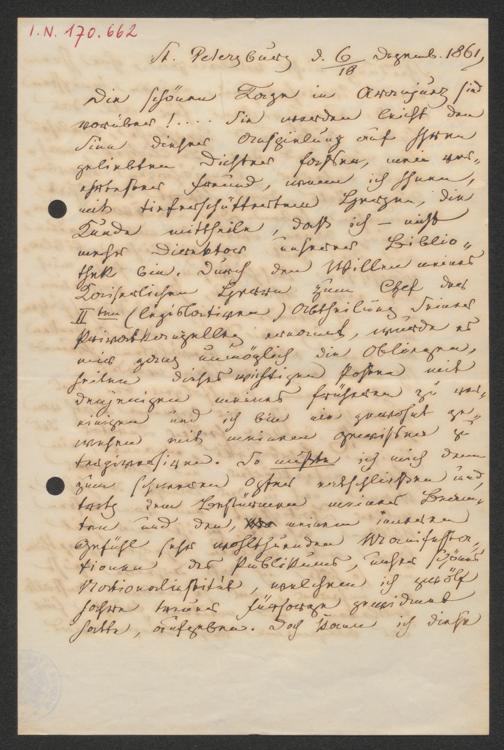 I.N. 170.662
St. Petersburg d. 6/18 Dezemb. 1861,
Die schönen Tage in Aranjuez sind
vorüber!.... Sie werden leicht den
Sinn dieser Anspielung auf Ihren
geliebten Dichter fassen, mein ver-
ehrtester Freund, wenn ich Ihnen,
mit tieferschüttertem Herzen, die
Kunde mittheile, daß ich – nicht
mehr Direktor unserer Biblio-
thek bin. Durch den Willen meines
Kaiserlichen Herrn zum Chef der
IIten (legislativen) Abtheilung Seiner
Privatkanzellei ernannt, wurde es
mir ganz unmöglich die Obliegen-
heiten dieses wichtigen Postens mit
denjenigen meines früheren zu ver-
einigen und ich bin nie gewohnt ge-
wesen mit meinem Gewissen zu
tergiversiren. So mußte ich mich denn
zum schweren Opfer entschließen und
trotz dem Bestürmen meiner Beam-
ten und den, meinem inneren
Gefühl sehr wohlthuenden Manifesta-
tionen des Publikums, unser schönes
Nationalinstitut, welchem ich zwölf
Jahre treuer Fürsorge gewidmet
hatte, aufgeben. Doch kann ich diese